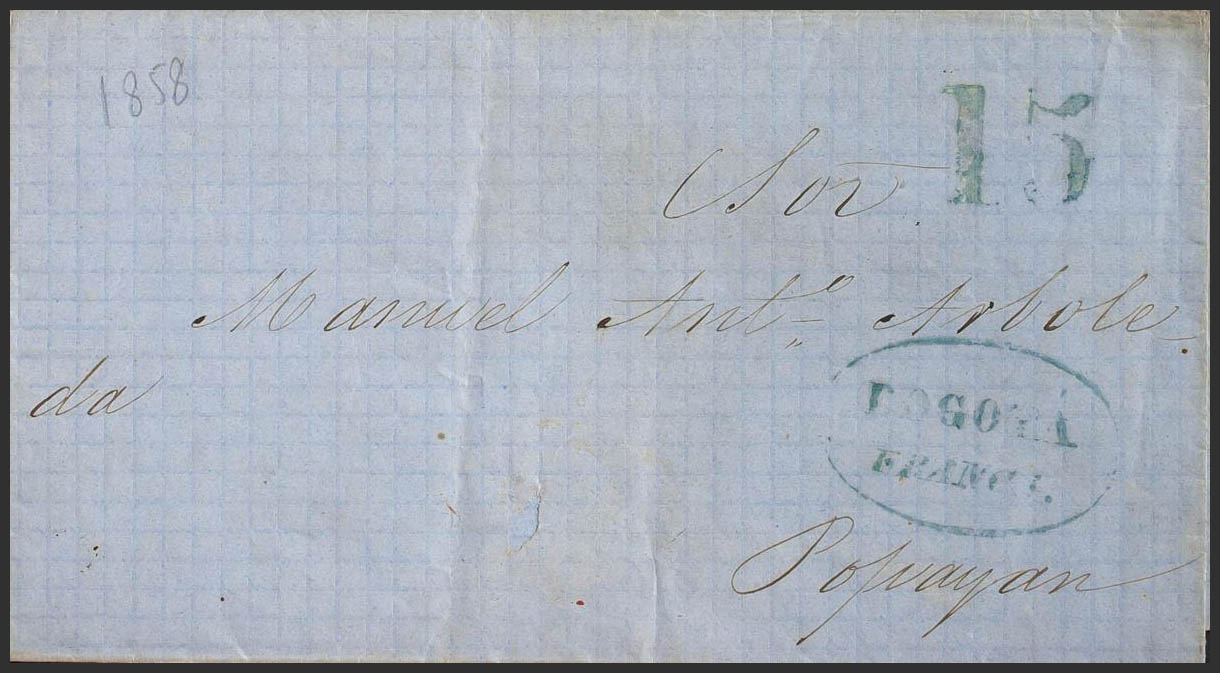 1858
15
Sor.
Manuel Ant.º Arbole
da
BOGOTÁ
FRANCA.
Popayan